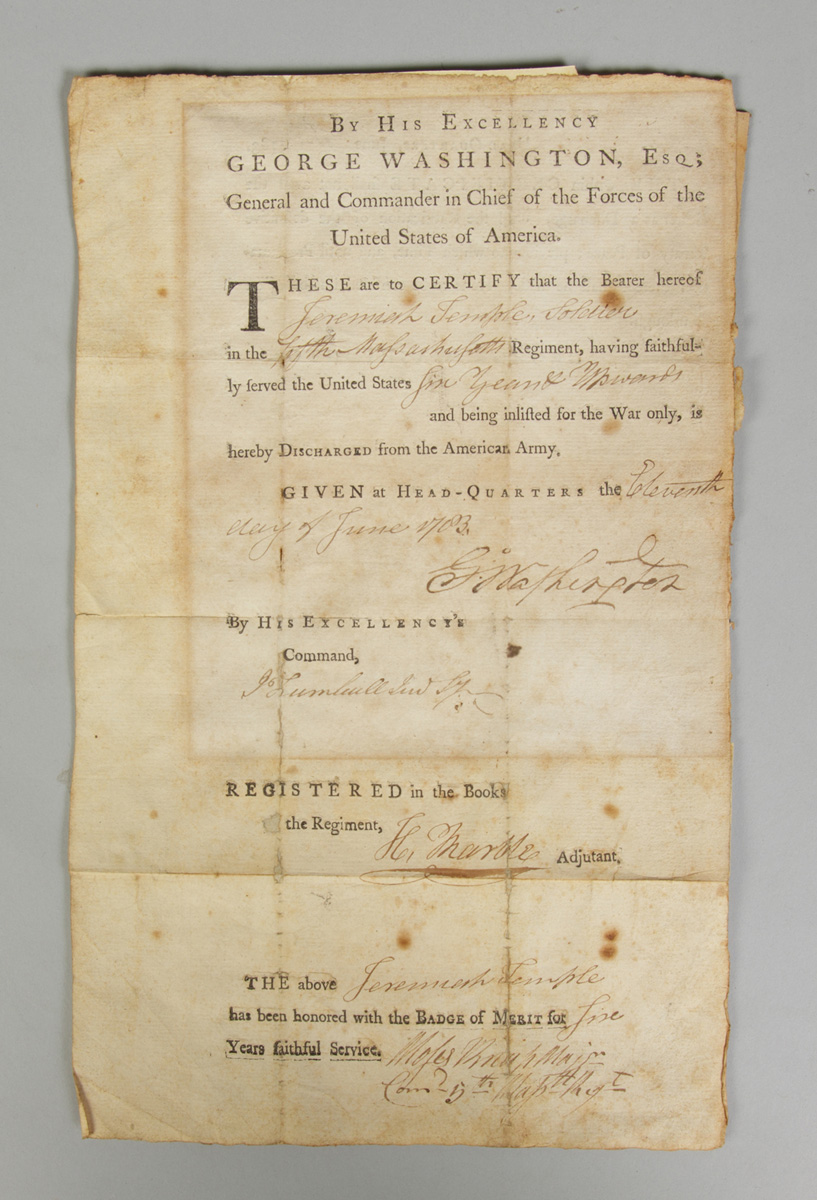 BY HIS EXCELLENCY
GEORGE WASHINGTON, ESQ;
General and Commander in Chief of the Forces of the
United States of America.
THESE are to CERTIFY that the Bearer hereof
Jeremiah Temple, Soldier
in the fifth Massachusetts Regiment, having faithful-
ly served the United States six Years & Upwards
and being inlisted for the War only, is
hereby DISCHARGED from the American Army.
GIVEN at HEAD-QUARTERS the Eleventh
day of June 1783.
G:Washington
By HIS EXCELLENCY'S
Command,
J Trumbull Jun Sy
REGISTERED in the Books
the Regiment,
H. Marble Adjutant.
THE above Jeremiah Temple
has been honored with the BADGE of MERIT for Six
Years faithful Service. Moses Knap Major
Comd 5th Masstts Regt